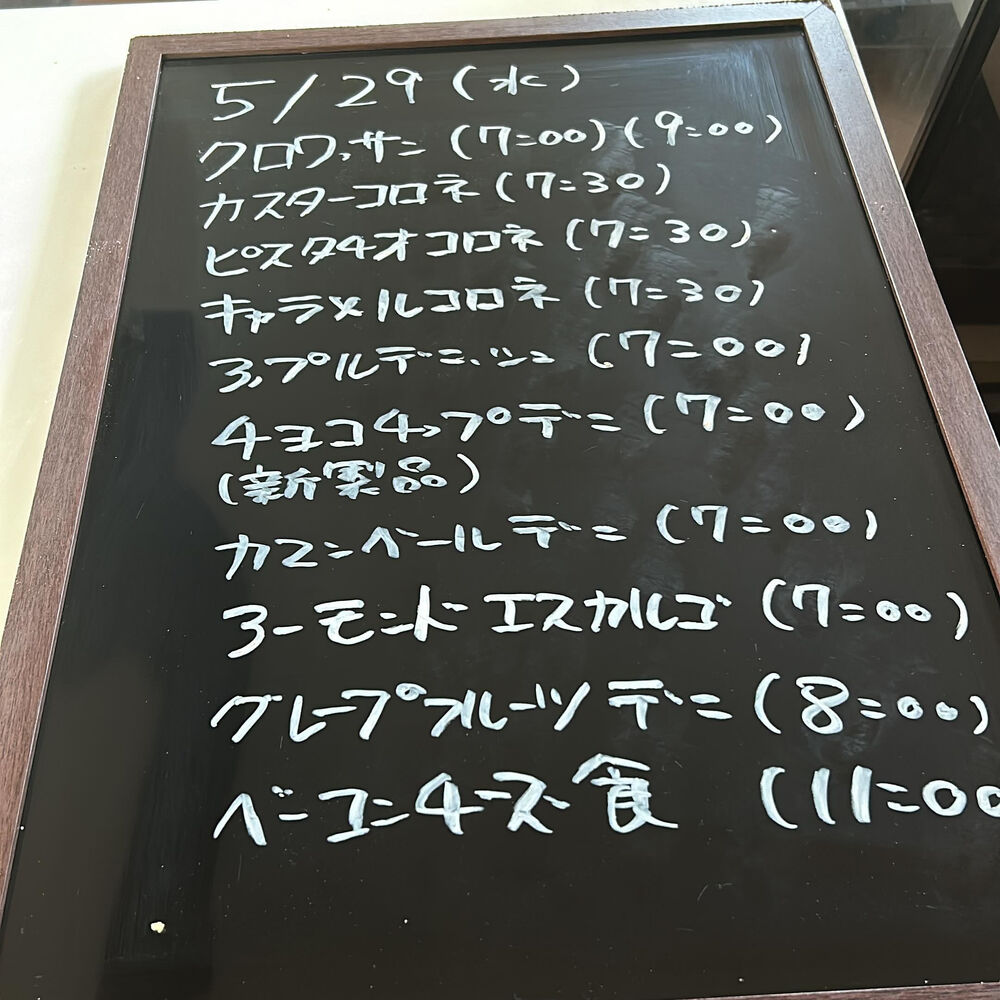 5/29(水)
クロワッサン(7:00)(9:00)
カスターコロネ(7:30)
ピスタチオコロネ(7:30)
キャラメルコロネ(7:30)
アップルデニッシュ(7:00)
チョコチップデニ(7:00)
(新製品)
カマンベールデニ(7:00)
アーモンドエスカルゴ(7:00)
グレープフルーツデニ(8:00)
ベーコンチーズ食(11:00